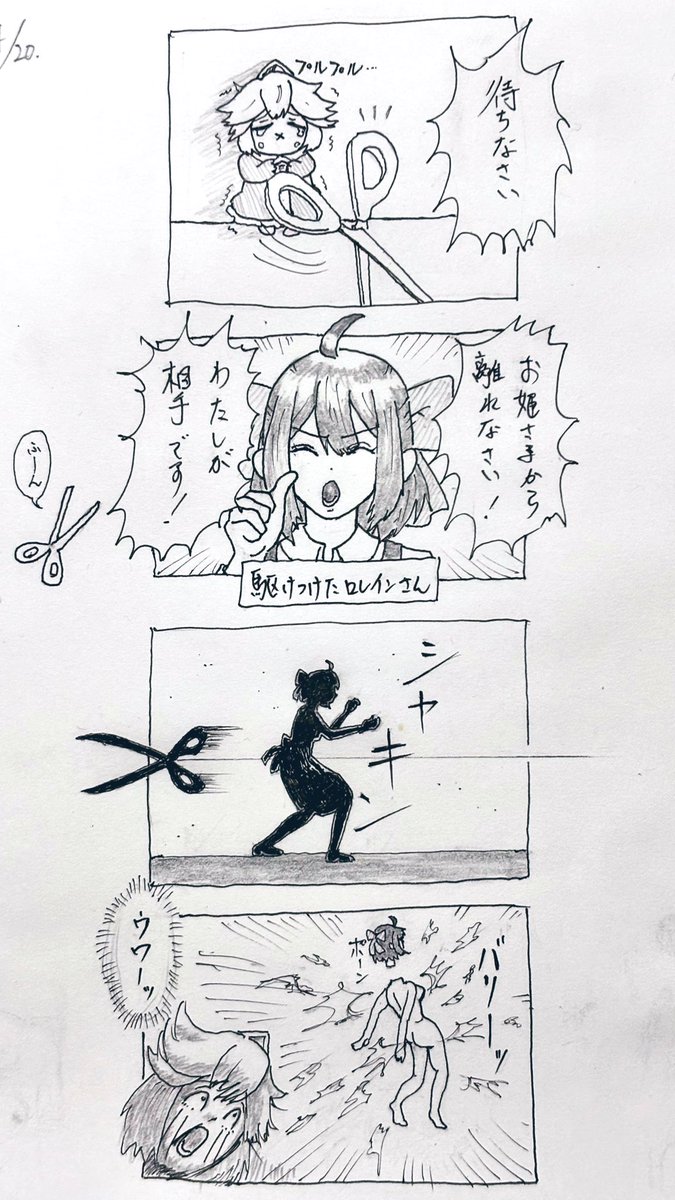 /20.
プルプル…
待ちなさい
お姫さまから
離れなさい!
わたしが
相手です!
ふーん
駆けつけたロレインさん
シャキン
バリーッ
ポーン
ウワーッ